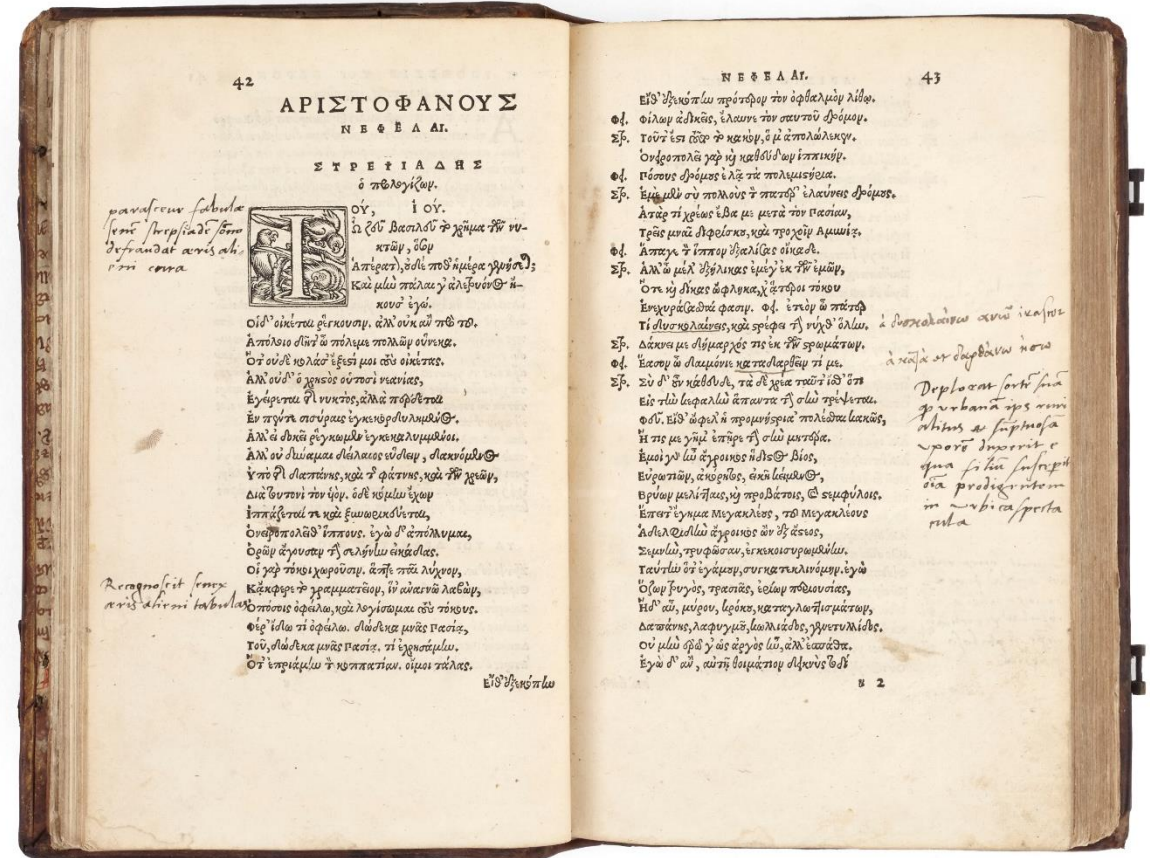 42
ΑΡΙΣΤΟΦΑΝΟΥΣ
ΝΕΦΕΛΑΙ.
ΣΤΡΕΨΙΑΔΗΣ
ὁ προλογίζων.
ΙΟΥ, ἰ ΟΥ.
Ὦ ζεῦ βασιλεῦ τὸ χρῆμα τῶν νυ-
κτῶν, ὅσον
Ἀπέρατον, οὐδέποθ' ἡμέρα γενήσεται;
Καὶ μὴν πάλαι γ' ἀλεκτρυόνος ἤ-
κουσ' ἐγώ.
Οἱ δ' οἰκέται ῥέγκουσιν. ἀλλ' οὐκ ἂν πρὸ τοῦ.
Ἀπόλοιο δῆτ' ὦ πόλεμε πολλῶν οὕνεκα.
Ὅτ' οὐδὲ κολάσ' ἔξεστί μοι τοὺς οἰκέτας.
Ἀλλ' οὐδ' ὁ χρηστὸς οὑτοσὶ νεανίας,
Ἐγείρεται τῆς νυκτὸς, ἀλλὰ πέρδεται
Ἐν πέντε σισύραις ἐγκεκορδυλημένος.
Ἀλλ' εἰ δοκεῖ ῥέγκωμεν ἐγκεκαλυμμένοι.
Ἀλλ' οὐ δύναμαι δείλαιος εὕδειν, δακνόμενος
Ὑπὸ τῆς δαπάνης, καὶ τῆς φάτνης, καὶ τῶν χρεῶν,
Διὰ τουτονὶ τὸν ὑόν. ὁ δὲ κόμην ἔχων
Ἱππάζεταί τε καὶ ξυνωρικεύεται,
Ὀνειροπολεῖθ' ἵππους. ἐγὼ δ' ἀπόλλυμαι,
Ὁρῶν ἄγουσαν τὴν σελήνην εἰκάδας.
Οἱ γὰρ τόκοι χωροῦσιν. ἅπτε παῖ λύχνον,
Κἄκφερε τὸ γραμματεῖον, ἵν' ἀναγνῶ λαβὼν,
Ὁπόσοις ὀφείλω, καὶ λογίσωμαι τοὺς τόκους.
Φέρ' ἴδω τί ὀφείλω. δώδεκα μνᾶς Πασίᾳ,
Τοῦ, δώδεκα μνᾶς Πασίᾳ. τί ἐχρησάμην.
Ὅτ' ἐπριάμην τὸν κοππατίαν. οἴμοι τάλας.
Εἴθ' ἐξεκόπην
parasceue fabulæ
senex strepsiades
defraudat æris ali-
eni cura
Recognoscit senex
æris alieni tabulas
ΝΕΦΕΛΑΙ. 43
Εἴθ' ἐξεκόπην πρότερον τὸν ὀφθαλμὸν λίθῳ.
Φει. Φίλων ἀδικεῖς, ἔλαυνε τὸν σαυτοῦ δρόμον.
Στρ. Τοῦτ' ἔστι τουτὶ τὸ κακὸν, ὅ μ' ἀπολώλεκεν.
Ὀνειροπολεῖ γὰρ καὶ καθεύδων ἱππικήν.
Φει. Πόσους δρόμους ἐλᾷ τὰ πολεμιστήρια.
Στρ. Ἐμὲ μὲν σὺ πολλοὺς τὸν πατέρ' ἐλαύνεις δρόμους.
Ἀτὰρ τί χρέως ἔβα με μετὰ τὸν Πασίαν,
Τρεῖς μναῖ διφρίσκου, καὶ τροχοῖν Ἀμυνίᾳ,
Φει. Ἄπαγε τὸν ἵππον ἐξαλίσας οἴκαδε.
Στρ. Ἀλλ' ὦ μέλ' ἐξήλικας ἐμέγ' ἐκ τῶν ἐμῶν,
Ὅτε καὶ δίκας ὤφληκα, χἄτεροι τόκου
Ἐνεχυράζεσθαί φασιν. Φει. ἐτεὸν ὦ πάτερ
Τί δυσκολαίνεις, καὶ στρέφει τὴν νύχθ' ὅλην.
Στρ. Δάκνει με δήμαρχός τις ἐκ τῶν στρωμάτων.
Φει. Ἔασον ὦ δαιμόνιε καταδαρθεῖν τί με.
Στρ. Σὺ δ' οὖν κάθευδε, τὰ δὲ χρέα ταῦτ' ἴσθ' ὅτι
Εἰς τὴν κεφαλὴν ἅπαντα τὴν σὴν τρέψεται.
Φεῦ. Εἴθ' ὤφελ' ἡ προμνήστρια' πολέσθαι κακῶς,
Ἥτις με γῆμ' ἐπῆρε τὴν σὴν μητέρα.
Ἐμοὶ γὰρ ἦν ἄγροικος ἥδιστος βίος,
Εὐρωτιῶν, ἀκόρητος, εἰκῆ κείμενος,
Βρύων μελίτταις, καὶ προβάτοις, καὶ στεμφύλοις.
Ἔπειτ' ἔγημα Μεγακλέους, τοῦ Μεγακλέους
Ἀδελφιδῆν ἄγροικος ὢν ἐξ ἄστεος,
Σεμνὴν, τρυφῶσαν, ἐγκεκοισυρωμένην.
Ταύτην ὅτ' ἐγάμουν, συγκατεκλινόμην. ἐγὼ
Ὄζων τρυγὸς, τρασιᾶς, ἐρίων περιουσίας,
Ἡ δ' αὖ, μύρου, κρόκου, καταγλωττισμάτων,
Δαπάνης, λαφυγμοῦ, κωλιάδος, γενετυλλίδος.
Οὐ μὴν ἐρῶ γ' ὡς ἀργὸς ἦν, ἀλλ' ἐσπάθα.
Ἐγὼ δ' ἂν, αὐτῇ θοἰμάτιον δεικνὺς τοδὶ
2
à δυσκολαίνω
à κατὰ et δαρθάνω
Deplorat sortem suam